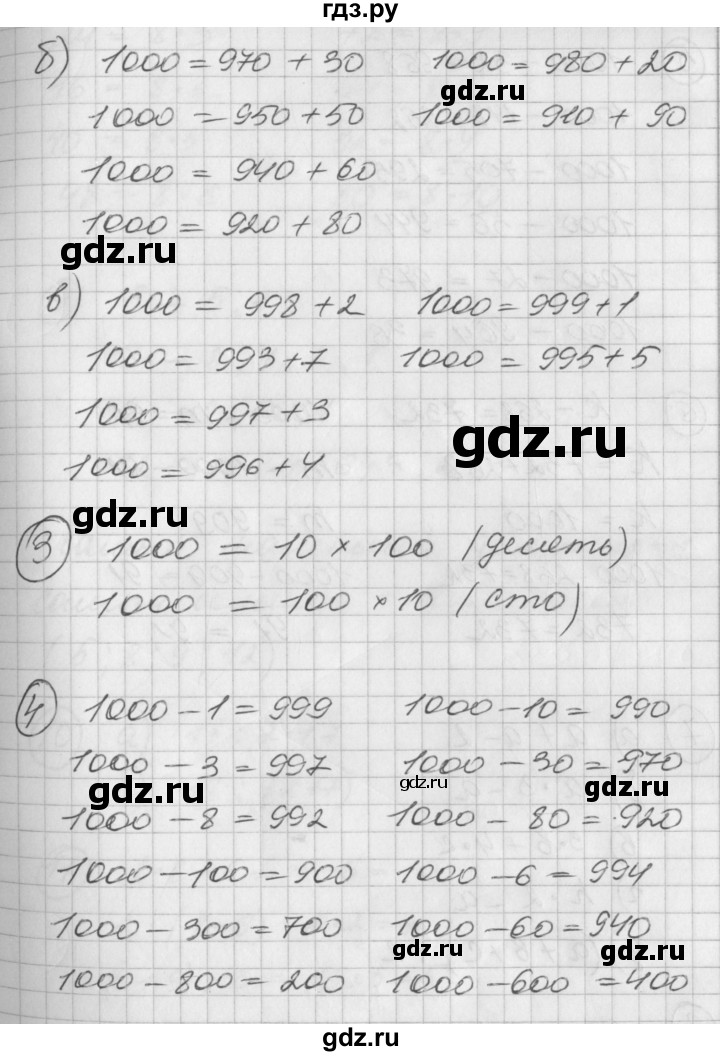 гдз.ру
б) 1000 = 970 + 30 1000 = 980 + 20
gdz.ru
1000 = 950 + 50 1000 = 910 + 90
1000 = 940 + 60
1000 = 920 + 80
gdz.ru
в) 1000 = 998 + 2 1000 = 999 + 1
1000 = 993 + 7 1000 = 995 + 5
1000 = 997 + 3
gdz.ru
1000 = 996 + 4
gdz.ru
3 1000 = 10 × 100 (десять)
1000 = 100 × 10 (сто)
4 1000 - 1 = 999 1000 - 10 = 990
1000 - 3 = 997 1000 - 30 = 970
gdz.ru gdz.ru gdz.ru
1000 - 8 = 992 1000 - 80 = 920
1000 - 100 = 900 1000 - 6 = 994
1000 - 300 = 700 1000 - 60 = 940
gdz.ru gdz.ru
1000 - 800 = 200 1000 - 600 = 400
gdz.ru